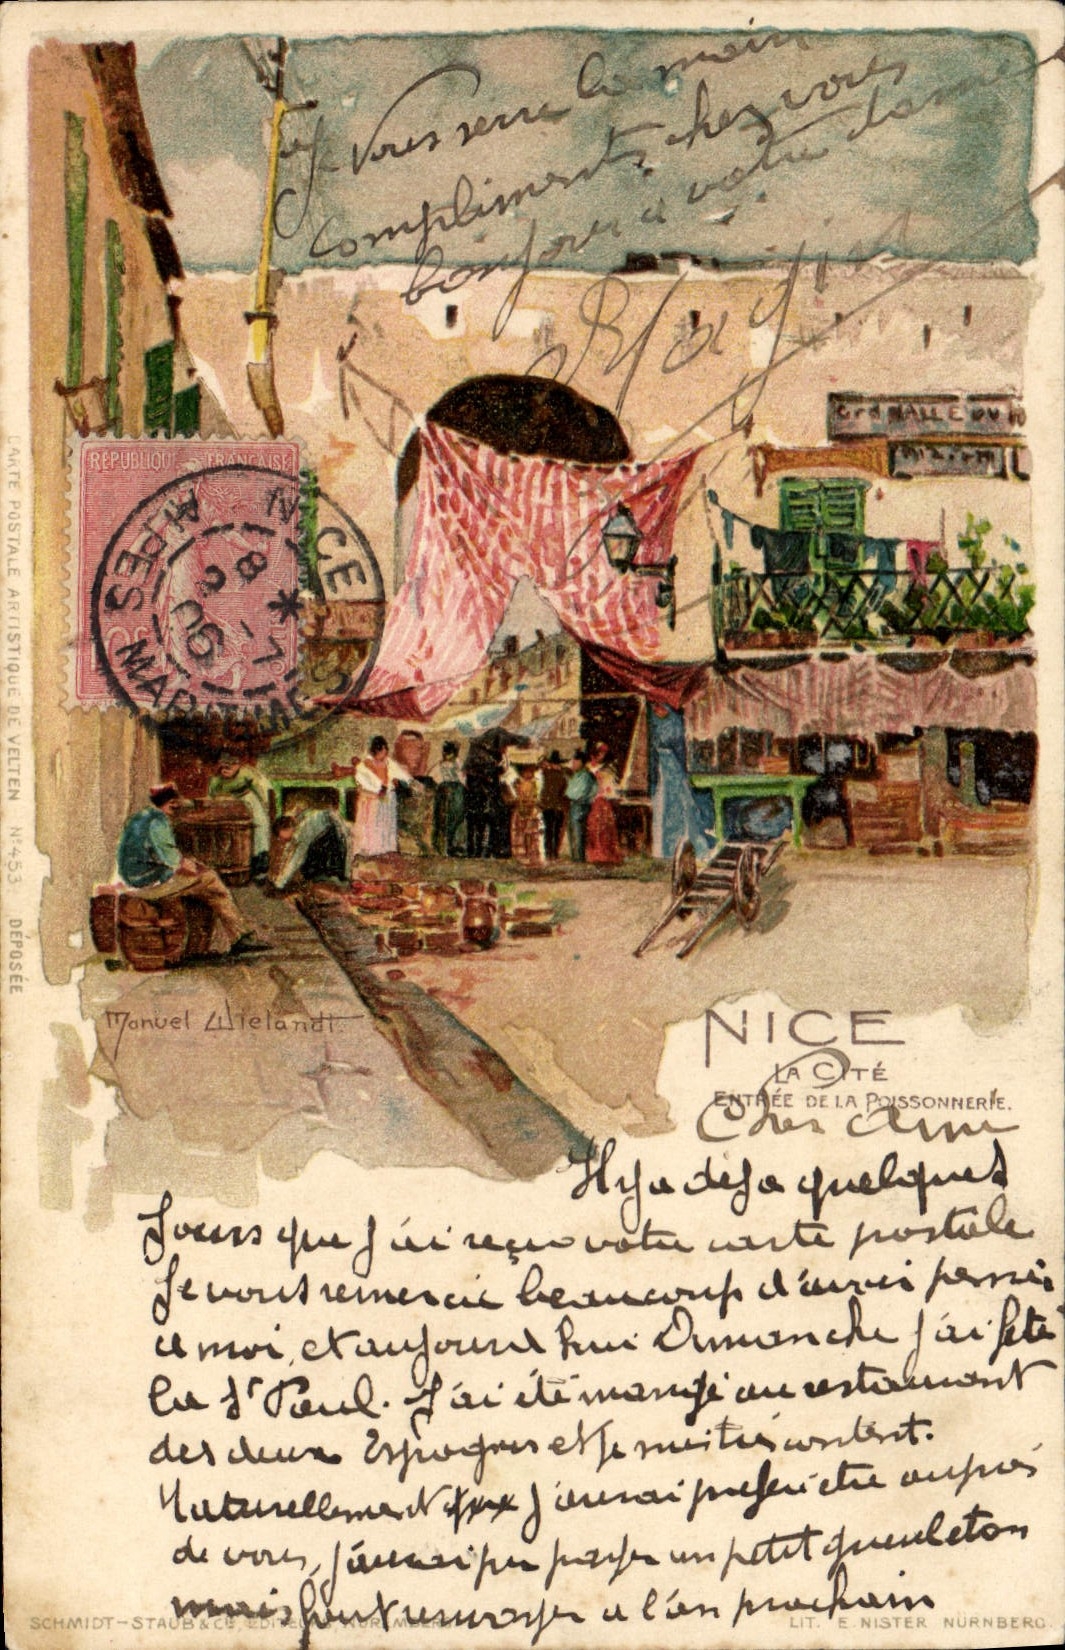 Je vous serre la main
compliments chez vous
bonjour a votre dame
Grd HALLE DU
RÉPUBLIQUE FRANÇAISE
NICE
ALPES MARITIMES
CARTE POSTALE ARTISTIQUE DE VELTEN Nº 453 DÉPOSÉE
Manuel Wielandt
NICE
LA CITÉ
ENTRÉE DE LA POISSONNERIE.
Cher Ami
Il y a deja quelques
Jours que J'ai reçu votre carte postale
Je vous remercie beaucoup d'avoir pensé
a moi, et aujourd hui Dimanche J'ai feté
la St Paul. J'ai été mangé au restaurant
des deux Espagnes et Je suis très content.
Naturellement J'aurai preferé etre auprés
de vous, J'aurai pu payer un petit gueuleton
mais faut renvoyer a l'an prochain
SCHMIDT-STAUB & Co, EDITEURS, NUREMBERG
LIT. E. NISTER NÜRNBERG.